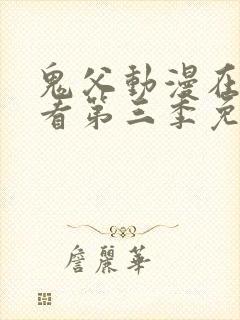 鬼父動漫在
看第三季免
詹麗華